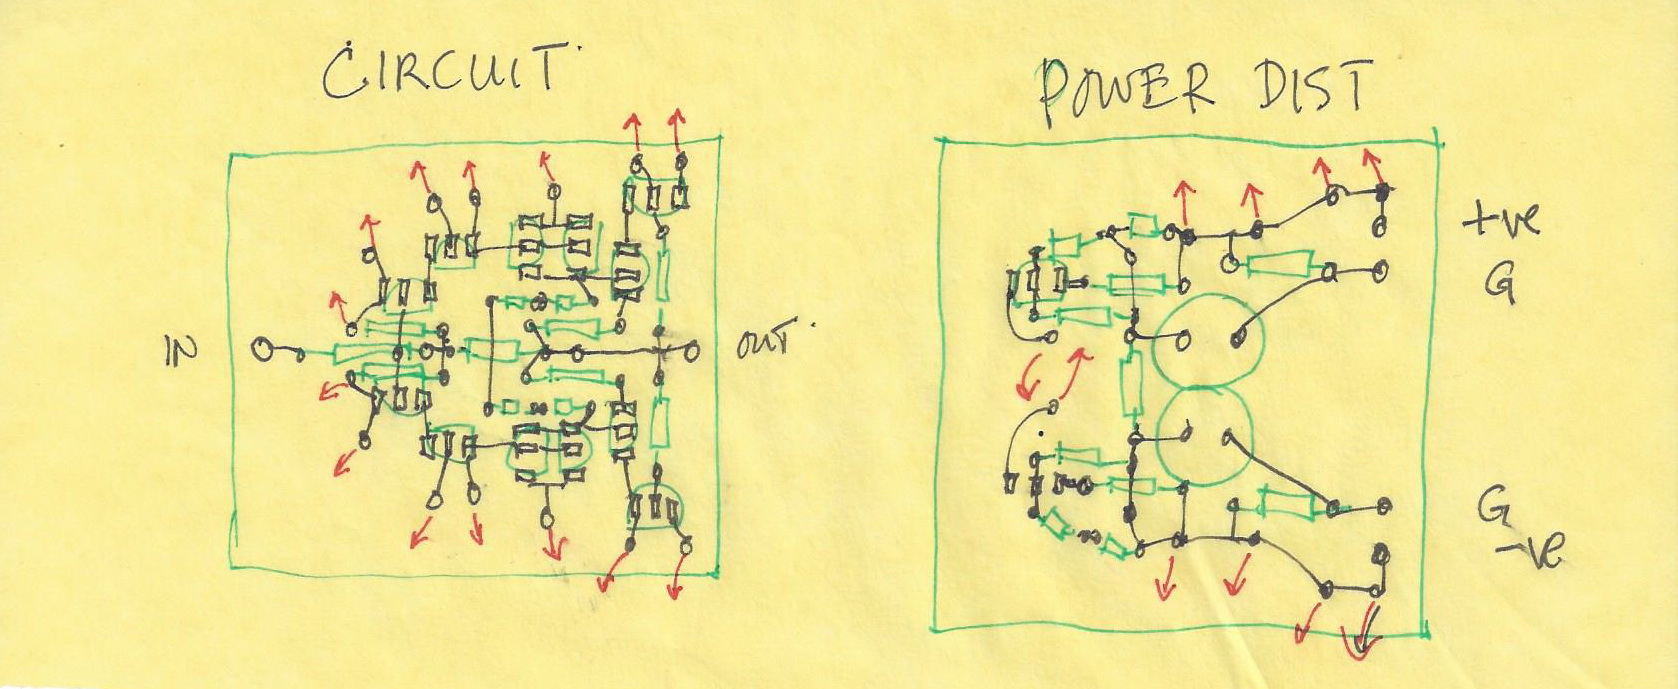 CIRCUIT
POWER DIST
IN
OUT
+ve
G
G
-ve